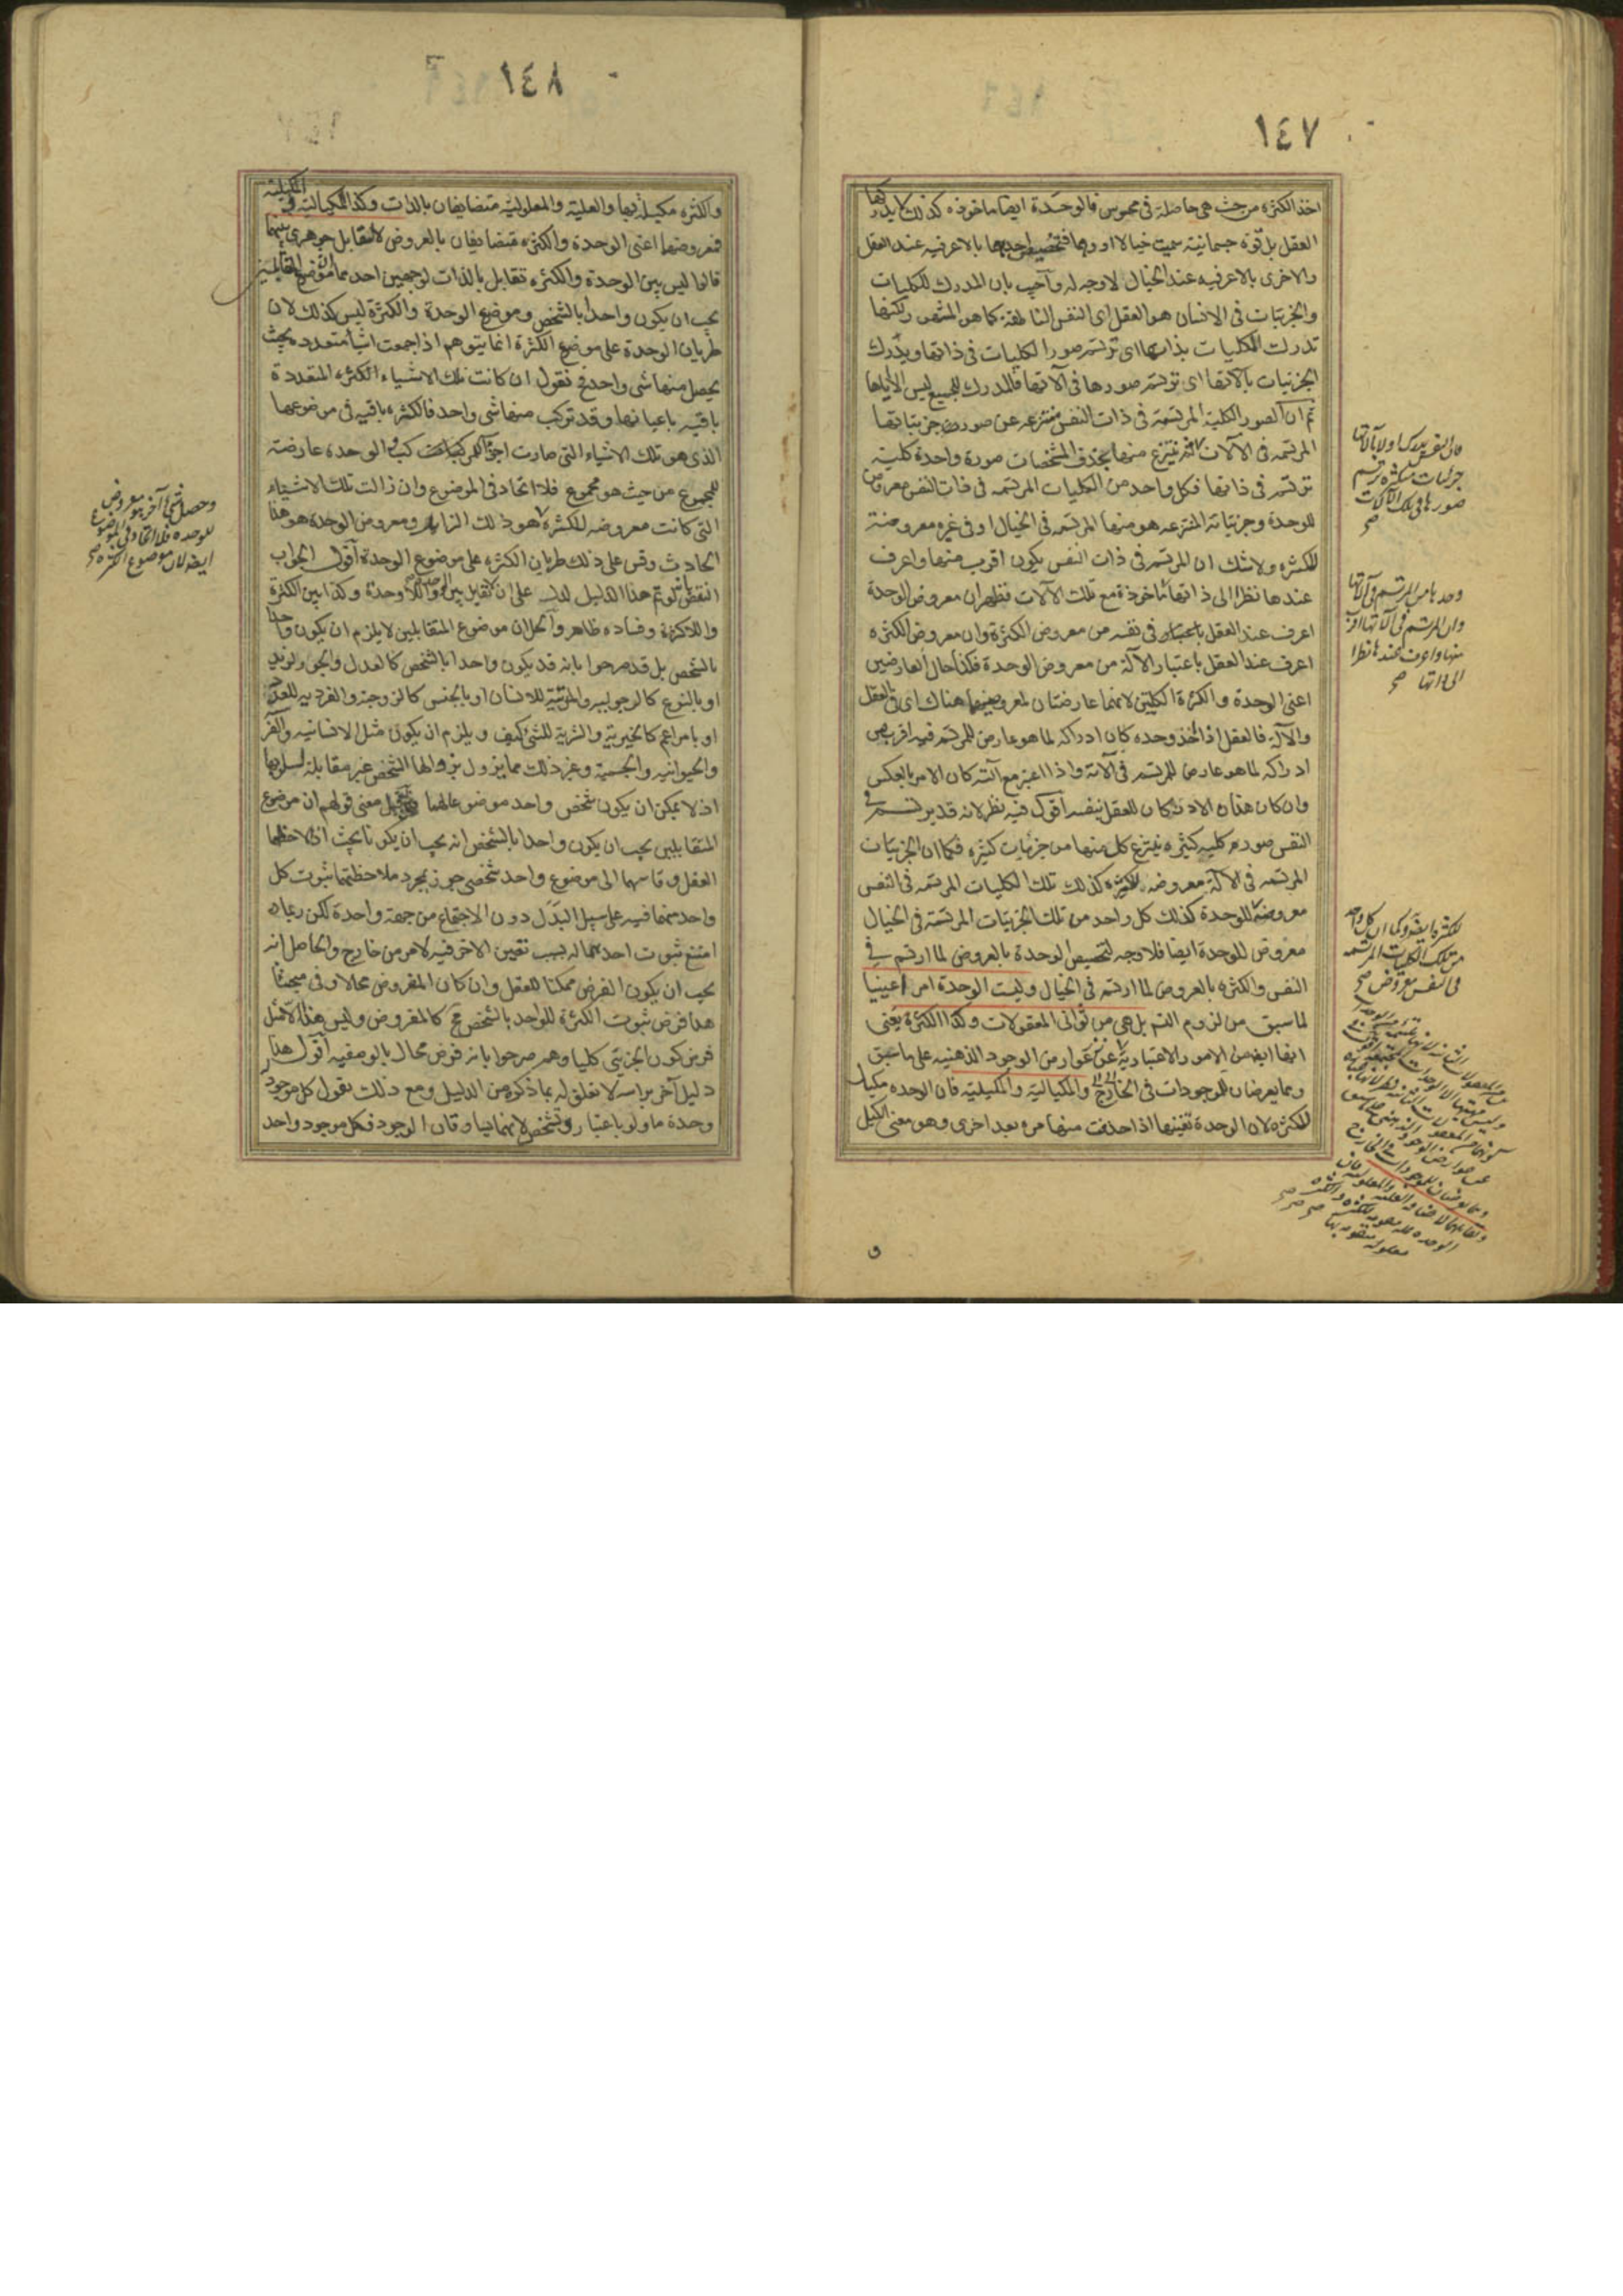 ١٤٧
اخذ الكثرة من حيث هى حاصلة فى محسوس فالوحدة ايضا ماخوذه كذلك لا يدركها
العقل بل قوة جسمانية سميت خيالا او وهما فتخصيص احديهما بالاعرفيه عند العقل
والاخرى بالاعرفيه عند الخيال لا وجه له وآجيب بان المدرك للكليات
والجزئيات فى الانسان هو العقل اى النفس الناطقة كما هو المشهور ولكنها
تدرك الكليات بذاتها اى ترتسم صور الكليات فى ذاتها ويدرك
الجزئيات بالاتها اى ترتسم صورها فى آلاتها فالمدرك للجميع ليس الا اياها
ثم ان الصور الكلية المرتسمة فى ذات النفس منتزعه عن صور جزئياتها
المرتسمه فى الآلات فينتزع منها بحذف المشخصات صورة واحدة كلية
ترتسم فى ذاتها فكل واحد من الكليات المرتسمه فى ذات النفس معروض
للوحدة وجزئياته المنتزعه هو منها المرتسمه فى الخيال او فى غيره معروضة
للكثره ولا شك ان المرتسم فى ذات النفس يكون اقرب منها واعرف
عندها نظرا الى ذاتها ماخوذة مع تلك الآلات فظهر ان معروض الوحدة
اعرف عند العقل باعتباره فى نفسه من معروض الكثرة وان معروض الكثره
اعرف عند العقل باعتبار الآلة من معروض الوحدة فكذا حال العارضين
اعنى الوحدة والكثرة الكليتين لانهما عارضتان لمعروضيهما هناك اى فى العقل
والآلة فالعقل اذا اخذ وحده كان ادراكه لما هو عارض للمرتسم فيه اقرب من
ادراكه لما هو عارض للمرتسم فى آلاته واذا اعتبر مع آلته كان الامر بالعكس
وان كان هذان الادراكان للعقل بنفسه آقول فيه نظر لانه قد يرتسم فى
النفس صور كليه كثيره ينتزع كل منها من جزئيات كثيره فكما ان الجزئيات
المرتسمه فى الآلة معروضه للكثره كذلك تلك الكليات المرتسمه فى النفس
معروضة للوحدة كذلك كل واحد من تلك الجزئيات المرتسمة فى الخيال
معروض للوحدة ايضا فلا وجه لتخصيص الوحدة بالعروض لما ارتسم فى
النفس والكثره بالعروض لما ارتسم فى الخيال وليست الوحدة امرا عينيا
لما سبق من لزوم التسم بل هى من ثوانى المعقولات وكذا الكثرة يعنى
انها ايض من الامور الاعتبارية عن عوارض الوجود الذهنيه على ما سبق
ومما يعرضان للموجودات فى الخارج والمكيالية والمكيلية فان الوحده مكيال
للكثره لان الوحدة تفنيها اذا حذفت منها مرة بعد اخرى وهو معنى الكيل
فان النفس يدركها اولا بآلاتها
جزئيات متكثره ترتسم
صورها فى تلك الآلات
صح
وحدها من المرتسم فى آلاتها
وان المرتسم فى آلاتها اقرب
منها واعرف عندها نظرا
الى ذاتها صح
للكثره ايضا وكما ان كل واحد
من تلك الكليات المرتسمه
فى النفس معروض صح
١٤٨
والكثره مكيلة بها والعلية والمعلولية متضايفان بالذات وكذا المكيالية و المكيلية
فمعروضها اعنى الوحدة والكثره متضايفان بالعروض لا لتقابل جوهرى بينهما
قالوا ليس بين الوحدة والكثره تقابل بالذات لوجهين احدهما ان موضوع المتقابلين
يجب ان يكون واحدا بالشخص وموضوع الوحدة والكثرة ليس كذلك لان
طريان الوحدة على موضوع الكثرة انما يتوهم اذا جمعت اشياء متعدده بحيث
يحصل منها شى واحد فح نقول ان كانت تلك الاشياء الكثره المتعددة
باقيه باعيانها وقد تركب منها شى واحد فالكثره باقيه فى موضوعها
الذى هو تلك الاشياء التى صارت اجزاء للمركب والوحدة عارضة
للمجموع من حيث هو مجموع فلا اتحاد فى الموضوع وان زالت تلك الاشياء
التى كانت معروضه للكثرة هو ذلك الزايل ومعروض الوحدة هو هذا
الحادث وقس على ذلك طريان الكثره على موضوع الوحدة آقول الجواب
النقض بانه لو تم هذا الدليل لدل على ان لا تقابل بين الوحدة واللاوحدة وكذا بين الكثرة
واللاكثرة وفساده ظاهر والحل ان موضوع المتقابلين لا يلزم ان يكون واحدا
بالشخص بل قد صرحوا بانه قد يكون واحدا بالشخص كالعدل والجور لزيد
او بالنوع كالرجوليه والمرئية للانسان او بالجنس كالزوجية والفرديه للعدد
او بامر اعم كالخيرية والشرية للشئ كيف ويلزم ان يكون مثل الانسانيه والفرسية
والحيوانيه والجسمية وغير ذلك مما يزول بزوالها الشخص غير مقابلة لسلوبها
اذ لا يمكن ان يكون شخص واحد موضوعا لهما معنى قولهم ان موضوع
المتقابلين يجب ان يكون واحدا بالشخص انه يجب ان يكونا بحيث اذا لاحظهما
العقل وقاسهما الى موضوع واحد شخصى جوز بمجرد ملاحظتهما ثبوت كل
واحد منهما فيه على سبيل البدل دون الاجتماع من جهة واحدة لكن ربما
امتنع ثبوت احدهما له بسبب تعين الاخر فيه لامر من خارج والحاصل انه
يجب ان يكون الفرض ممكنا للعقل وان كان المفروض محالا وفى مبحثنا
هذا فرض ثبوت الكثرة للواحد بالشخص مح كالمفروض وليس هذا الا مثل
فرض كون الجزئى كليا وهم صرحوا بانه فرض محال بالوصفيه آقول هذا
دليل آخر براسه لا تعلق له بما ذكره من الدليل ومع ذلك نقول كل موجود
وحدة ما ولو باعتبار وتشخص لانهما يساوقان الوجود فكل موجود واحد
وحصل شى آخر هو معروض
للوحده فلا اتحاد فى الموضوع
ايضا لان موضوع الكثره صح